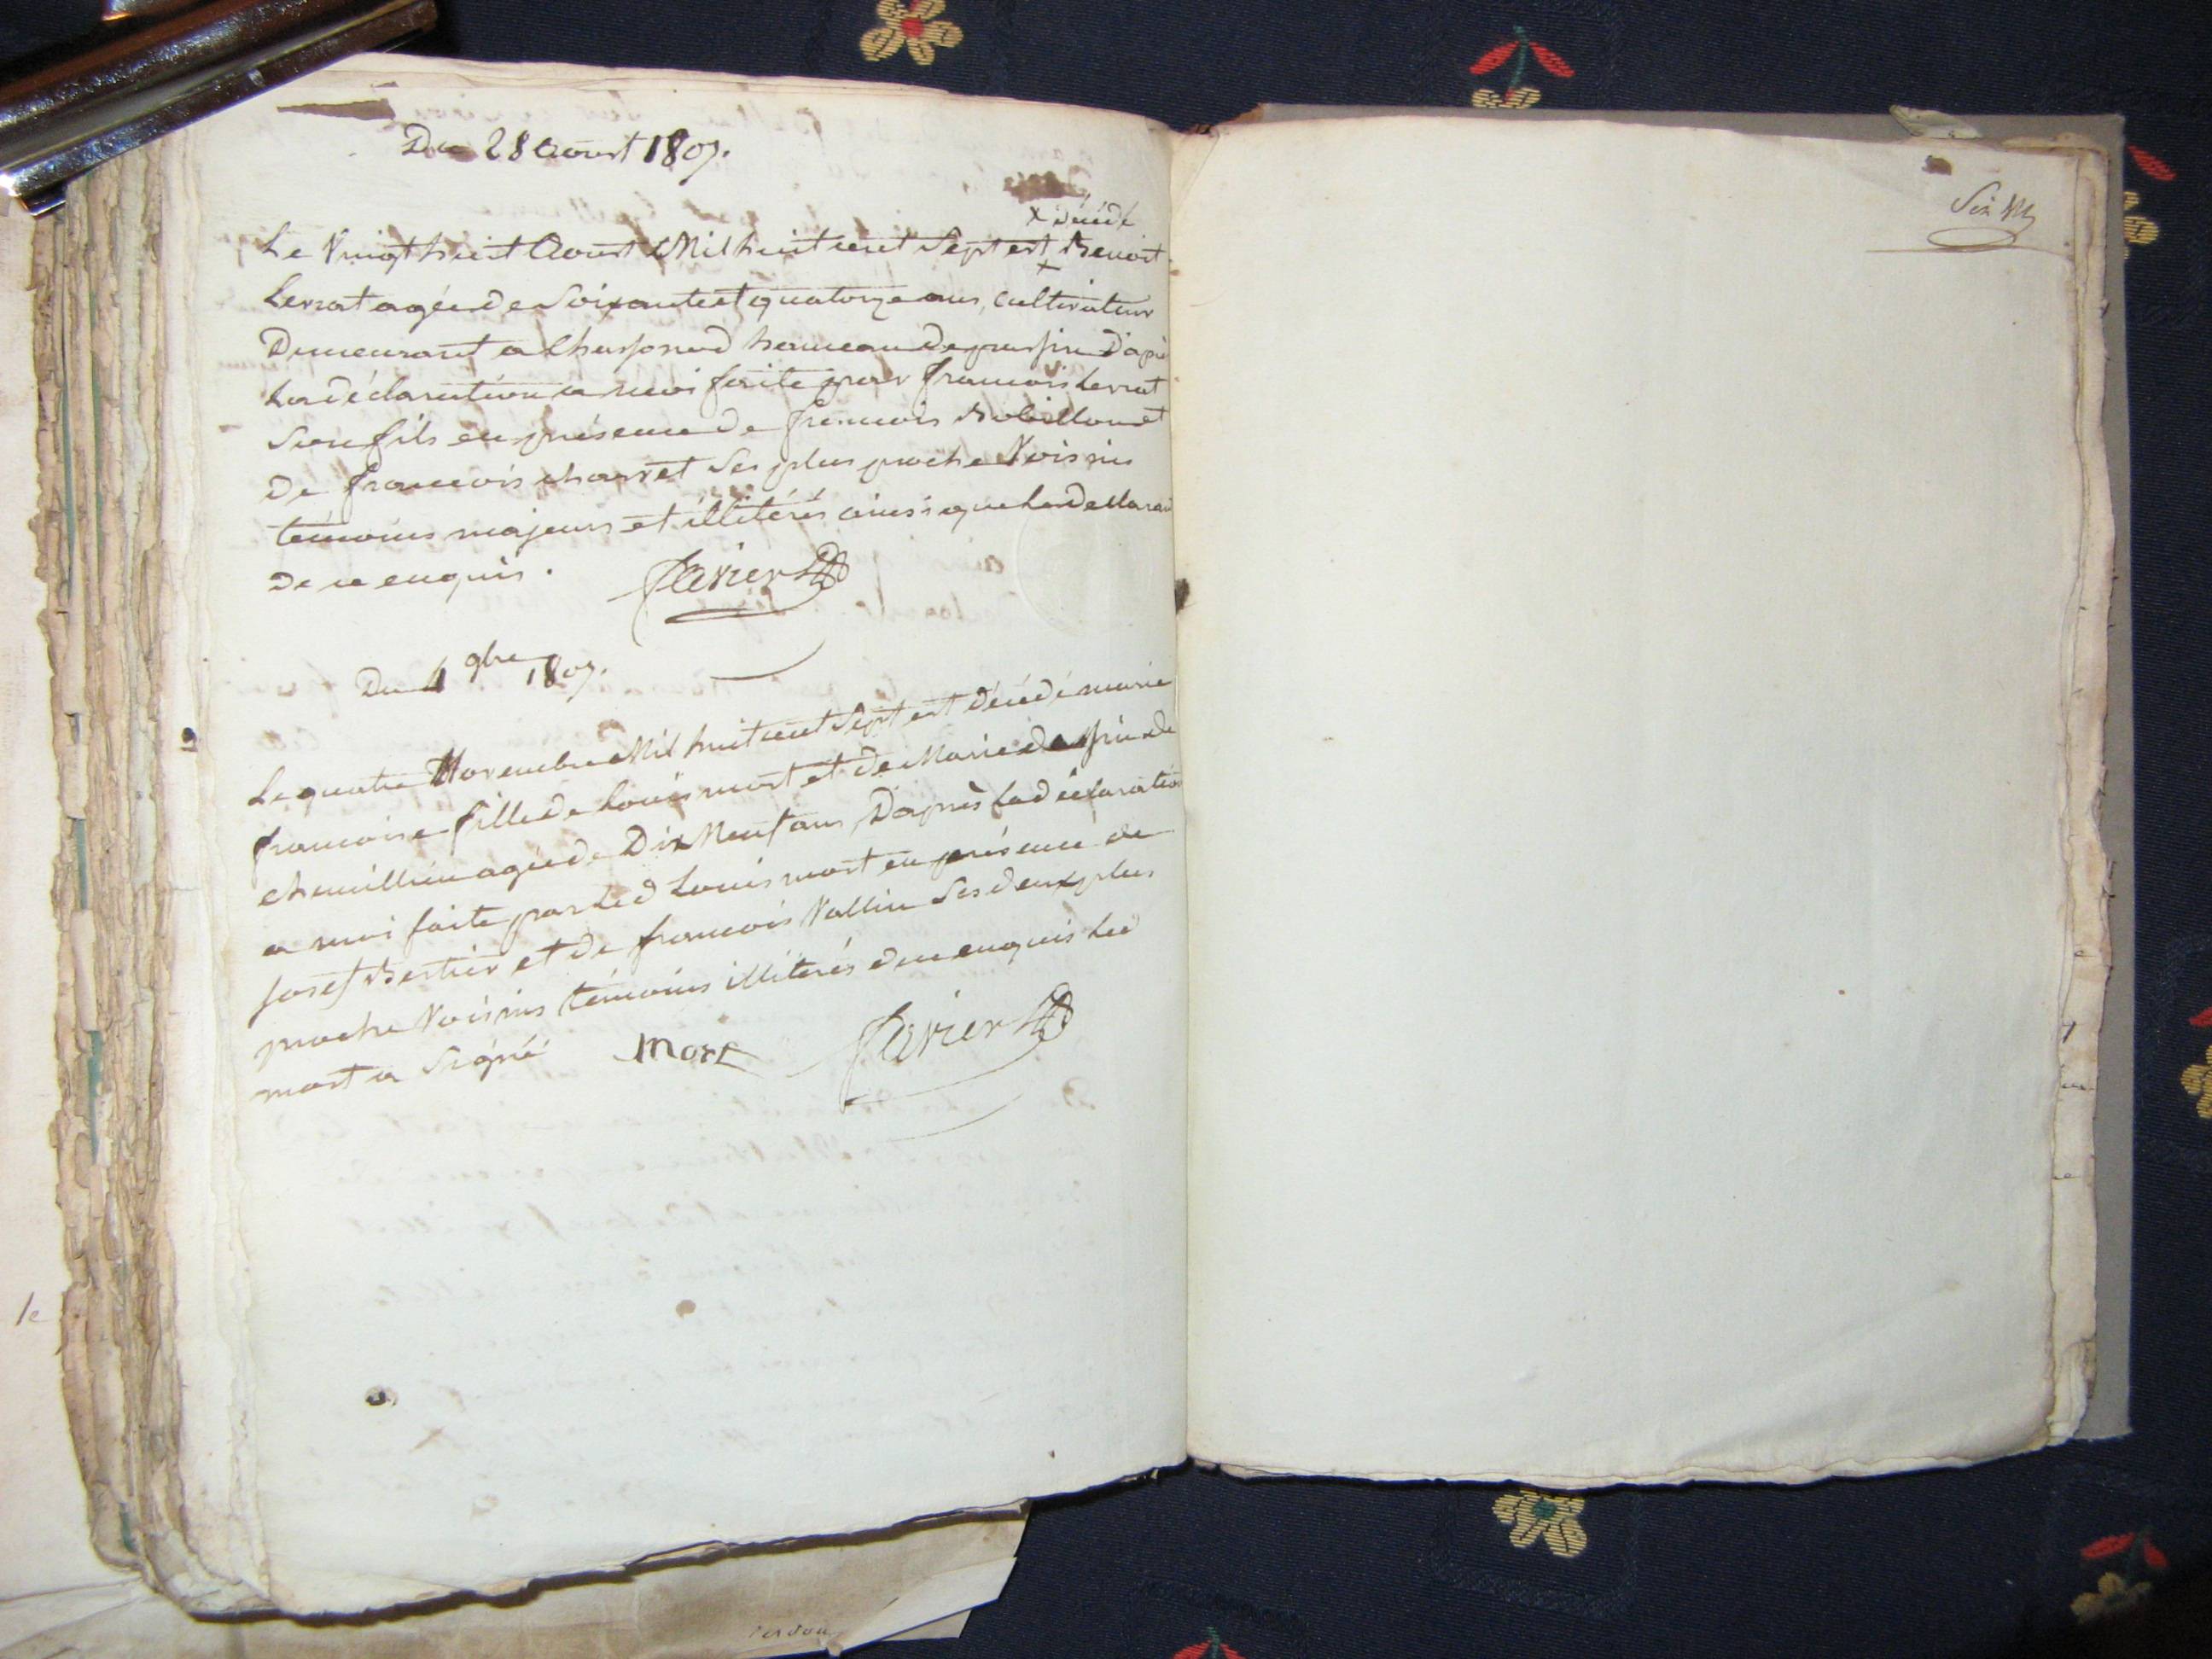 Du 28 Aoust 1807.
x décédé
Le Vingt huit Aoust Mil huit cent Sept est x Benoit
Lerrat agée de Soixante et quatorze ans, cultivateur
Demeurant a hameau de D'aprè
La déclaration a moi faite par francois Lerrat
Son fils en présence de francois Robillon et
De francois charret Ses plus proche Voisins
témoins majeurs et illitérés ainsi que Le
De ce enquis. Favier
Du 4 9bre 1807.
Le quatre Novembre Mil huit cent Sept est décédé marie
francoise fille de Louis mort et de Marie de
agée de Dix Neuf ans, D'après La déclaration
a moi faite par Led Louis mort en présence de
Josef Bertier et de francois Vallin Ses deux plus
proche Voisins témoins illiterés de ce enquis Led
mort a Signé Mort Favier
Six